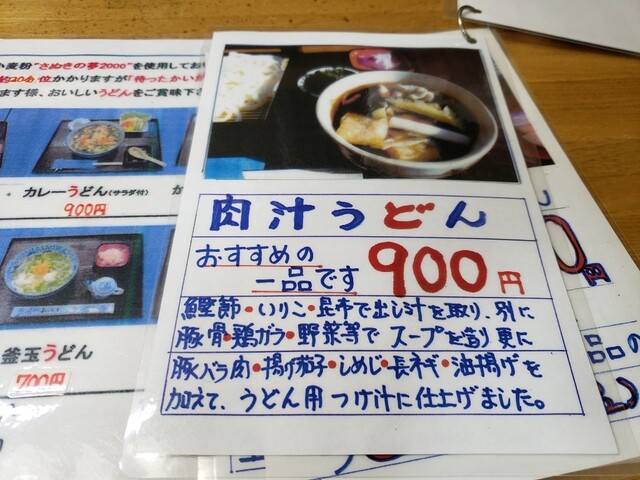 小麦粉"さぬきの夢2000"を使用してお
約20分位かかりますが「待ったかいが
ます様、おいしいうどんをご賞味下さ
カレーうどん(サラダ付)
900円
か
釜玉うどん
700円
肉汁うどん
おすすめの
一品です
900円
鰹節・いりこ・昆布で出し汁を取り、別に
豚骨・鶏ガラ・野菜等でスープを造り更に
豚バラ肉・揚げ茄子・しめじ・長ネギ・油揚げを
加えて、うどん用つけ汁に仕上げました。
ん
0円
品の